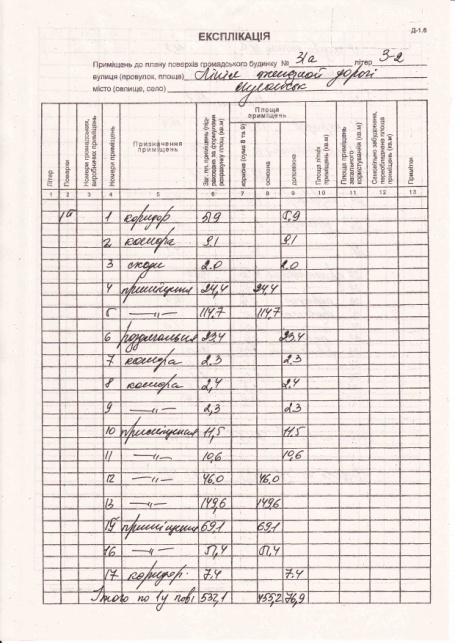 Д-1.6
ЕКСПЛІКАЦІЯ
Приміщень до плану поверхів громадського будинку № 31а літер З-2
вулиця (провулок, площа) Лінія дороги
місто (селище, село)
Літер
Поверхи
Номери приміщень
Призначення приміщень
Площа приміщень
корисна (сума 8 та 9)
основна
допоміжна
Площа літніх приміщень (кв.м)
Площа приміщень загального користування (кв.м)
Самовільно забудована, переобладнана площа приміщень (кв.м)
Примітки
1 2 3 4 5 6 7 8 9 10 11 12 13
1й 1 коридор 5,9 5,9
2 комора 9,1 9,1
3 сходи 2.0 2.0
4 приміщення 24,4 24,4
5 —"— 114.7 114,7
6 роздягальня 23.4 23.4
7 комора 2.3 2.3
8 комора 2,4 2.4
9 —"— 2,3 2.3
10 приміщення 11,5 11.5
11 —"— 10,6 10,6
12 —"— 46.0 46.0
13 —"— 149,6 149,6
15 приміщення 69,1 69,1
16 —"— 51,4 51,4
17 коридор. 7.4 7.4
Ітого по 1 у пові 532,1 455,2 76,9